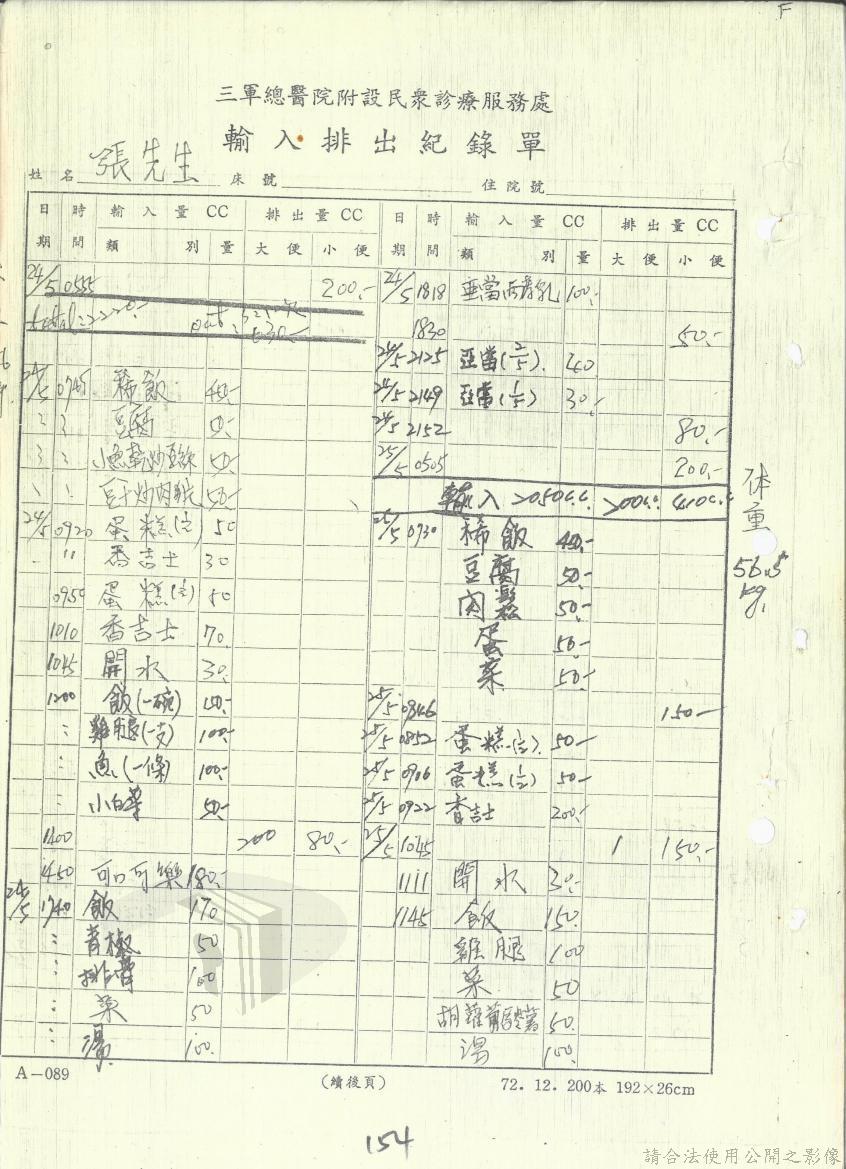 F
三軍總醫院附設民衆診療服務處
輸入排出紀錄單
姓名 張先生 床號 住院號
日期 時間 輸入量CC 類別 量 排出量CC 大便 小便
24/5 0555 200.-
total: 2220.-
24/5 0745 稀飯
豆腐 50.-
小魚乾炒豆 50.-
豆干炒肉 50.-
24/5 0920 蛋糕(½) 50
〃 香吉士 30
0950 蛋糕(½) 50
1010 香吉士 70.
1045 開水 30.
1200 飯(一碗)
雞腿(一支) 100.-
魚(一條) 100.-
小白菜 50.-
1400 200 80.-
1450 可口可樂 180.-
24/5 1740 飯 170
青椒 50
排骨 100
菜 50
湯 100.
日期 時間 輸入量CC 類別 量 排出量CC 大便 小便
24/5 1818 亞當 100.-
1830 50.-
24/5 2125 亞當(2/5). 40
24/5 2149 亞當(1/5) 30.-
24/5 2152 80.-
25/5 0505 200.-
輸入 2050c.c. 200c.c. 410c.c
25/5 0730 稀飯
豆腐 50.-
肉鬆 50.-
蛋 50.-
菜 50.-
25/5 0846 150.-
25/5 0852 蛋糕(½). 50.-
25/5 0906 蛋糕(½) 50.-
25/5 0922 香吉士 200.-
25/5 1045 1 150.-
1111 開水 30.-
1145 飯 150.
雞腿 100
菜 50
胡蘿蔔 50.
湯 100.
体重
56.5
kg.
A－089
(續後頁)
72. 12. 200本 192×26cm
154
請合法使用公開之影像